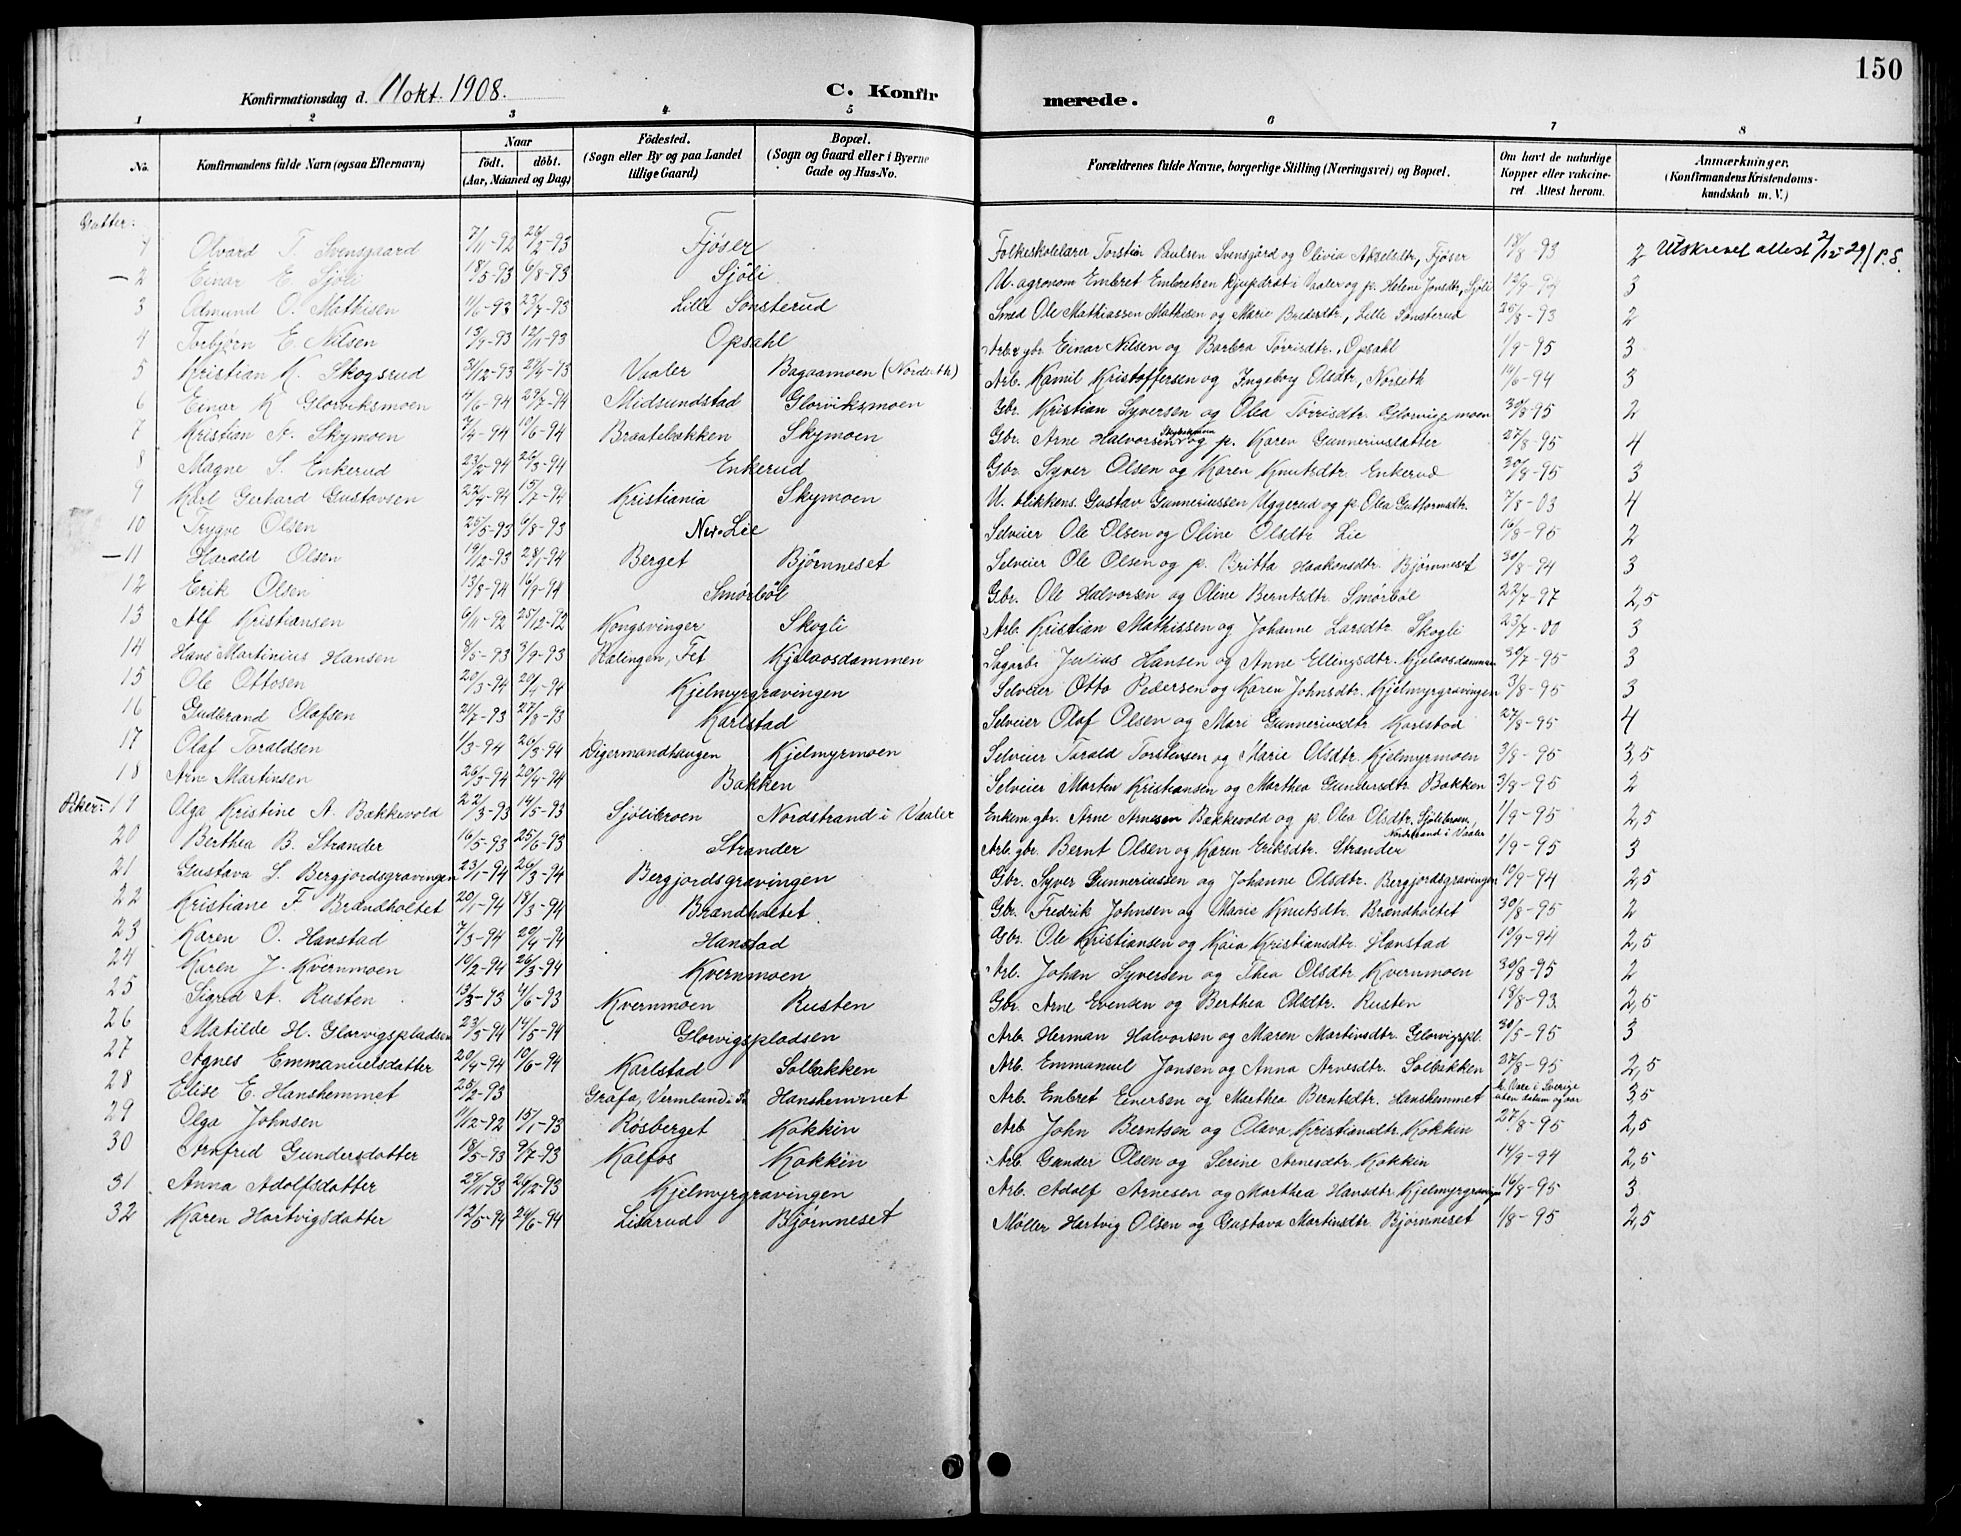 150
Konfirmationsdag d. 11 okt. 1908.
C. Konfirmerede.
1 2 3 4 5 6 7 8
No. Konfirmandens fulde Navn (ogsaa Efternavn) Naar födt. döbt. (Aar, Maaned og Dag) Födested. (Sogn eller By og paa Landet tillige Gaard) Bopæl. (Sogn og Gaard eller i Byerne Gade og Hus-No. Forældrenes fulde Navne, borgerlige Stilling (Næringsvei) og Bopæl. Om havt de naturlige Kopper eller vakcineret Attest herom. Anmærkninger, (Konfirmandens Kristendomskundskab m. V.)
Gutter:
1 Olvard T. Svensgaard 7/11-92 26/2-93 Fjöser Folkeskolelærer Torstein Paulsen Svensgård og Olivia Akselsdtr, Fjöser 18/8-93 2 Utskrevet attest 2/12-29/ P.S.
-2 Einar E. Sjöli 18/5-93 6/8-93 Sjöli U. agronom Embret Embretsen Kjupdröt i Vaaler og p. Helene Jonsdtr, Sjöli 3
3 Edmund O. Mathisen 11/6-93 23/7-93 Lille Sönsterud Smed Ole Mathiassen Mathisen og Marie Bredesdtr, Lille Sönsterud 25/8-93 2
4 Torbjørn E. Nilsen 13/9-93 12/11-93 Opsahl Arb. & gbr. Einar Nilsen og Barbra Törrisdtr., Opsahl 1/9-95 3
5 Kristian K. Skogsrud 31/12-93 Vaaler Bagaamoen (Nordseth) Arb. Kamil Kristoffersen og Ingeborg Olsdtr, Norseth 14/6-94 3
6 Einar K Glorviksmoen 4/6-94 29/7-94 Midsundstad Glorviksmoen Gbr. Kristian Syversen og Olea Törrisdtr. Glorvigsmoen 30/8-95 2
7 Kristian A. Skymoen 7/4-94 10/6-94 Braatebakken Skymoen Gbr. Arne Halvorsen og p. Karen Gunneriusdatter 27/8-95 4
8 Magne S. Enkerud 23/2-94 26/3-94 Enkerud Gbr. Syver Olsen og Karen Knutsdtr. Enkerud 30/8-95 3
9 Karl Gerhard Gustavsen 22/4-94 15/7-94 Kristiania Skymoen U. blikkens. Gustav Gunneriussen Uggerud og p. Olea Guttormsdtr. 7/8-03 4
10 Trygve Olsen 25/5-93 6/8-93 Ner-Lie Selveier Ole Olsen og Oline Olsdtr Lie 16/8-95 2
-11 Harald Olsen 19/12-93 28/1-94 Berget Bjørnneset Selveier Ole Olsen og p. Britta Haakonsdtr. Bjørnneset 30/8-94 3
12 Erik Olsen 13/8-94 16/9-94 Smörböl Gbr. Ole Halvorsen og Oline Berntsdtr. Smörböl 22/7-97 2,5
13 Alf Kristiansen 6/11-92 25/12-92 Kongsvinger Skogli Arb. Kristian Mathissen og Johanne Larsdtr. Skogli 23/7-00 3
14 Hans Martinius Hansen 8/5-93 3/9-93 Kalingen, Fet Kjelaosdammen Sagarb. Julius Hansen og Anne Ellingsdtr. Kjelaosdammen 30/7-95 3
15 Ole Ottosen 20/3-94 20/4-94 Kjelmyrgravingen Selveier Otto Pedersen og Karen Johnsdtr. Kjelmyrgravingen 3/8-95 3
16 Gudbrand Olafsen 21/7-93 27/8-93 Karlstad Selveier Olaf Olsen og Mari Gunneriusdtr. Karlstad 27/8-95 4
17 Olaf Toraldsen 1/3-94 20/3-94 Digermandhaugen Kjelmyrmoen Selveier Torald Torstensen og Marie Olsdtr. Kjelmyrmoen 3/8-95 3,5
18 Arne Martinsen 26/3-94 20/4-94 Bakken Selveier Morten Kristiansen og Marthea Gundersdtr. Bakken 3/8-95 2
Piker: 19 Olga Kristine A. Bakkevold 22/3-93 14/5-93 Sjölibroen Nordstrand i Vaaler Enkem. gbr. Arne Arnesen Bakkevold og p. Olea Olsdtr. Sjölibroen, Nordstrand i Vaaler 1/9-95 2,5
20 Berthea B. Strander 16/5-93 25/6-93 Strander Arb. gbr. Bernt Olsen og Karen Eriksdtr. Strander 1/9-95 3
21 Gustava S. Bergjordsgravingen 23/1-94 26/3-94 Bergjordsgravingen Gbr. Syver Gunneriussen og Johanne Olsdtr. Bergjordsgravingen 10/9-94 2,5
22 Kristiane F Brændholtet 20/1-94 18/3-94 Brændholtet. Gbr. Fredrik Johnsen og Marie Knutsdtr. Brændholtet 30/8-95 2
23 Karen O. Hanstad 7/3-94 20/4-94 Hanstad Gbr. Ole Kristiansen og Kaia Kristiansdtr. Hanstad 10/9-94 2,5
24 Karen J. Kvernmoen 10/2-94 26/3-94 Kvernmoen Arb. Johan Syversen og Thea Olsdtr. Kvernmoen 30/8-95 2
25 Sigrid A. Rusten 13/3-93 4/6-93 Kvernmoen Rusten Gbr. Arne Evensen og Berthea Olsdtr. Rusten 18/8-93 2,5
26 Matilde H. Glorvigspladsen 23/3-94 14/5-94 Glorvigspladsen Arb. Herman Halvorsen og Maren Martinsdtr. Glorvigspl. 30/5-95 3
27 Agnes Emmanuelsdatter 20/4-94 10/6-94 Karlstad Solbakken Arb. Emmanuel Jonsen og Anna Arnesdtr. Solbakken 27/8-95 2,5
28 Elise E. Hanshemmet 25/2-93 Gräfa, Vermland i Sv Hanshemmet Arb. Embret Einersen og Marthea Berntsdtr. Hanshemmet Vacc i Sverige uten datum og aar 3,5
29 Olga Johnsen 11/12-92 15/1-93 Røsberget Kokkin Arb. John Berntsen og Olava Kristiansdtr. Kokkin 27/8-95 2,5
30 Arnfrid Gundersdatter 18/5-93 9/7-93 Kalfos Kokkin Arb. Gunder Olsen og Serine Arnesdtr. Kokkin 14/9-94 2,5
31 Anna Adolfsdatter 29/11-93 26/12-93 Kjelmyrgravingen Arb. Adolf Arnesen og Marthea Hansdtr. Kjelmyrgravingen 16/8-95 3
32 Karen Hartvigsdatter 12/5-94 24/6-94 Liserud Bjørnneset Møller Hartvig Olsen og Gustava Martinsdtr. Bjørnneset 1/8-95 2,5